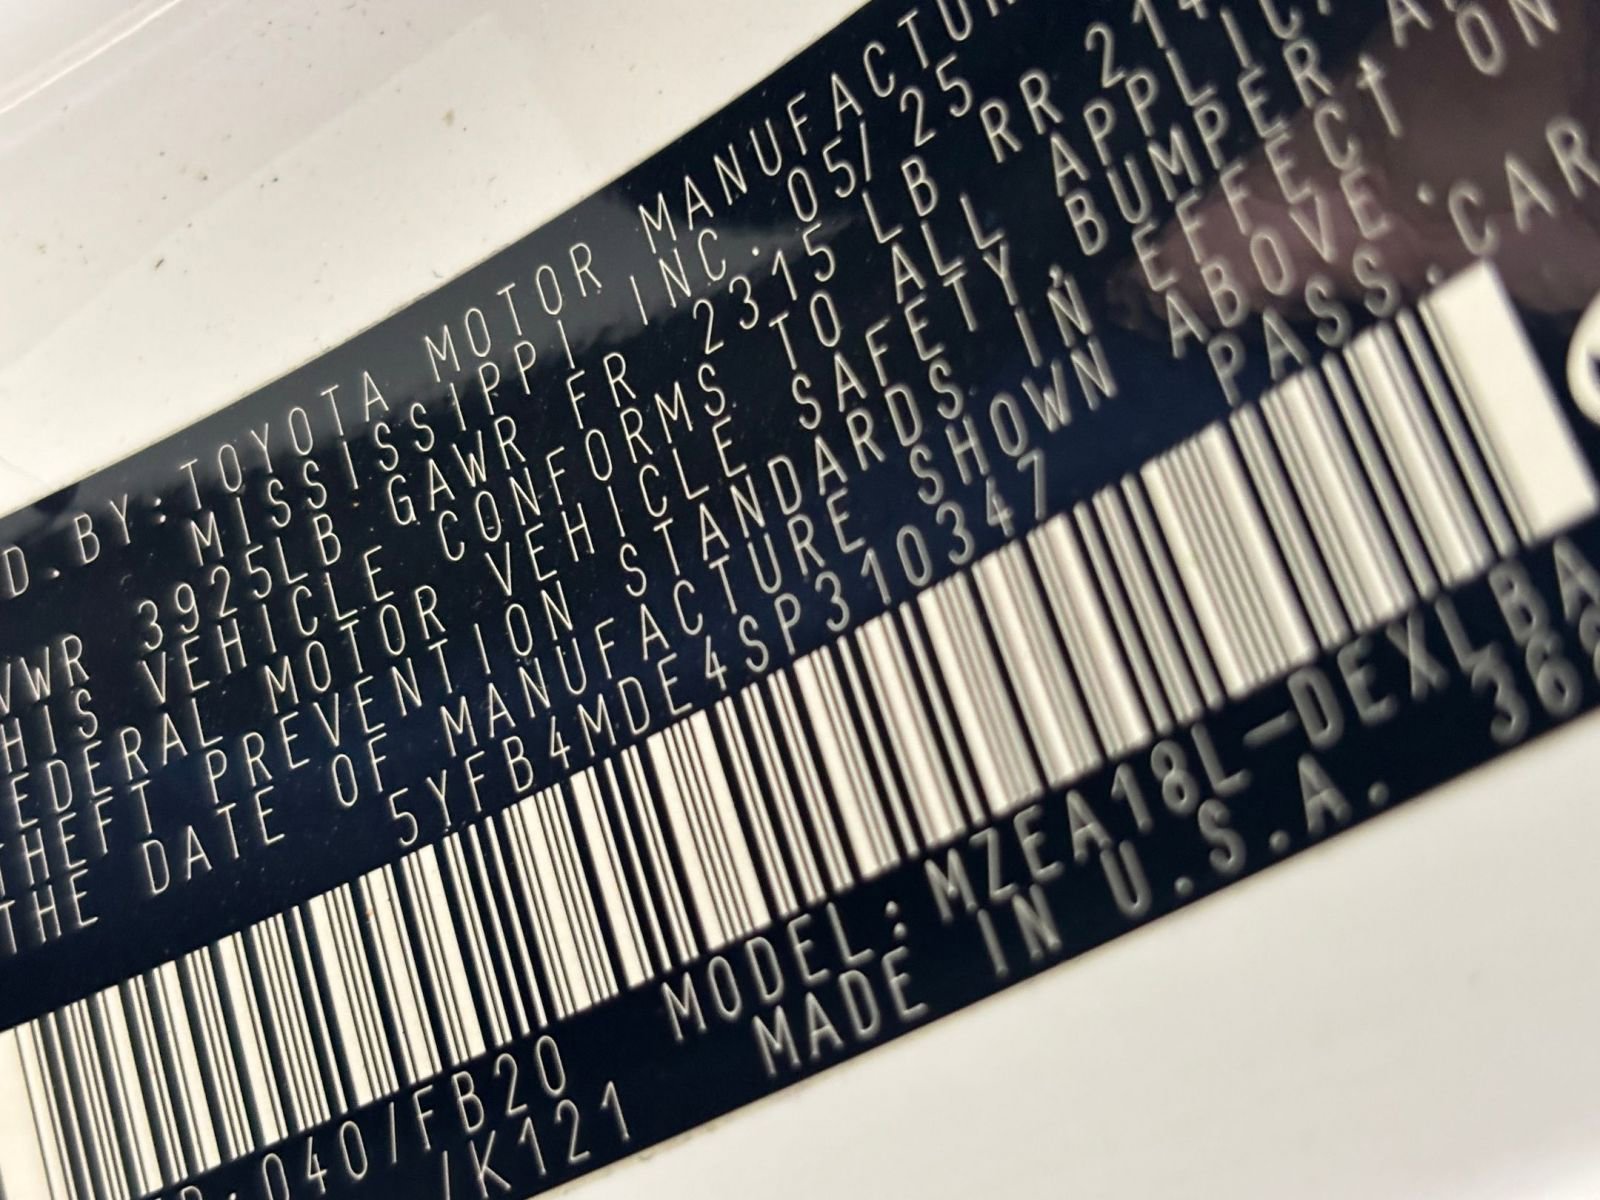 D.BY:TOYOTA MOTOR MANUFACTUR
MISSISSIPPI INC. 05/25
VWR 3925LB GAWR FR 2315 LB RR 21
HIS VEHICLE CONFORMS TO ALL APPLIC
EDERAL MOTOR VEHICLE SAFETY, BUMPER A
THEFT PREVENTION STANDARDS IN EFFECT ON
THE DATE OF MANUFACTURE SHOWN ABOVE.
5YFB4MDE4SP310347 PASS.CAR
040/FB20 MODEL:MZEA18L-DEXLBA
/K121 MADE IN U.S.A. 366